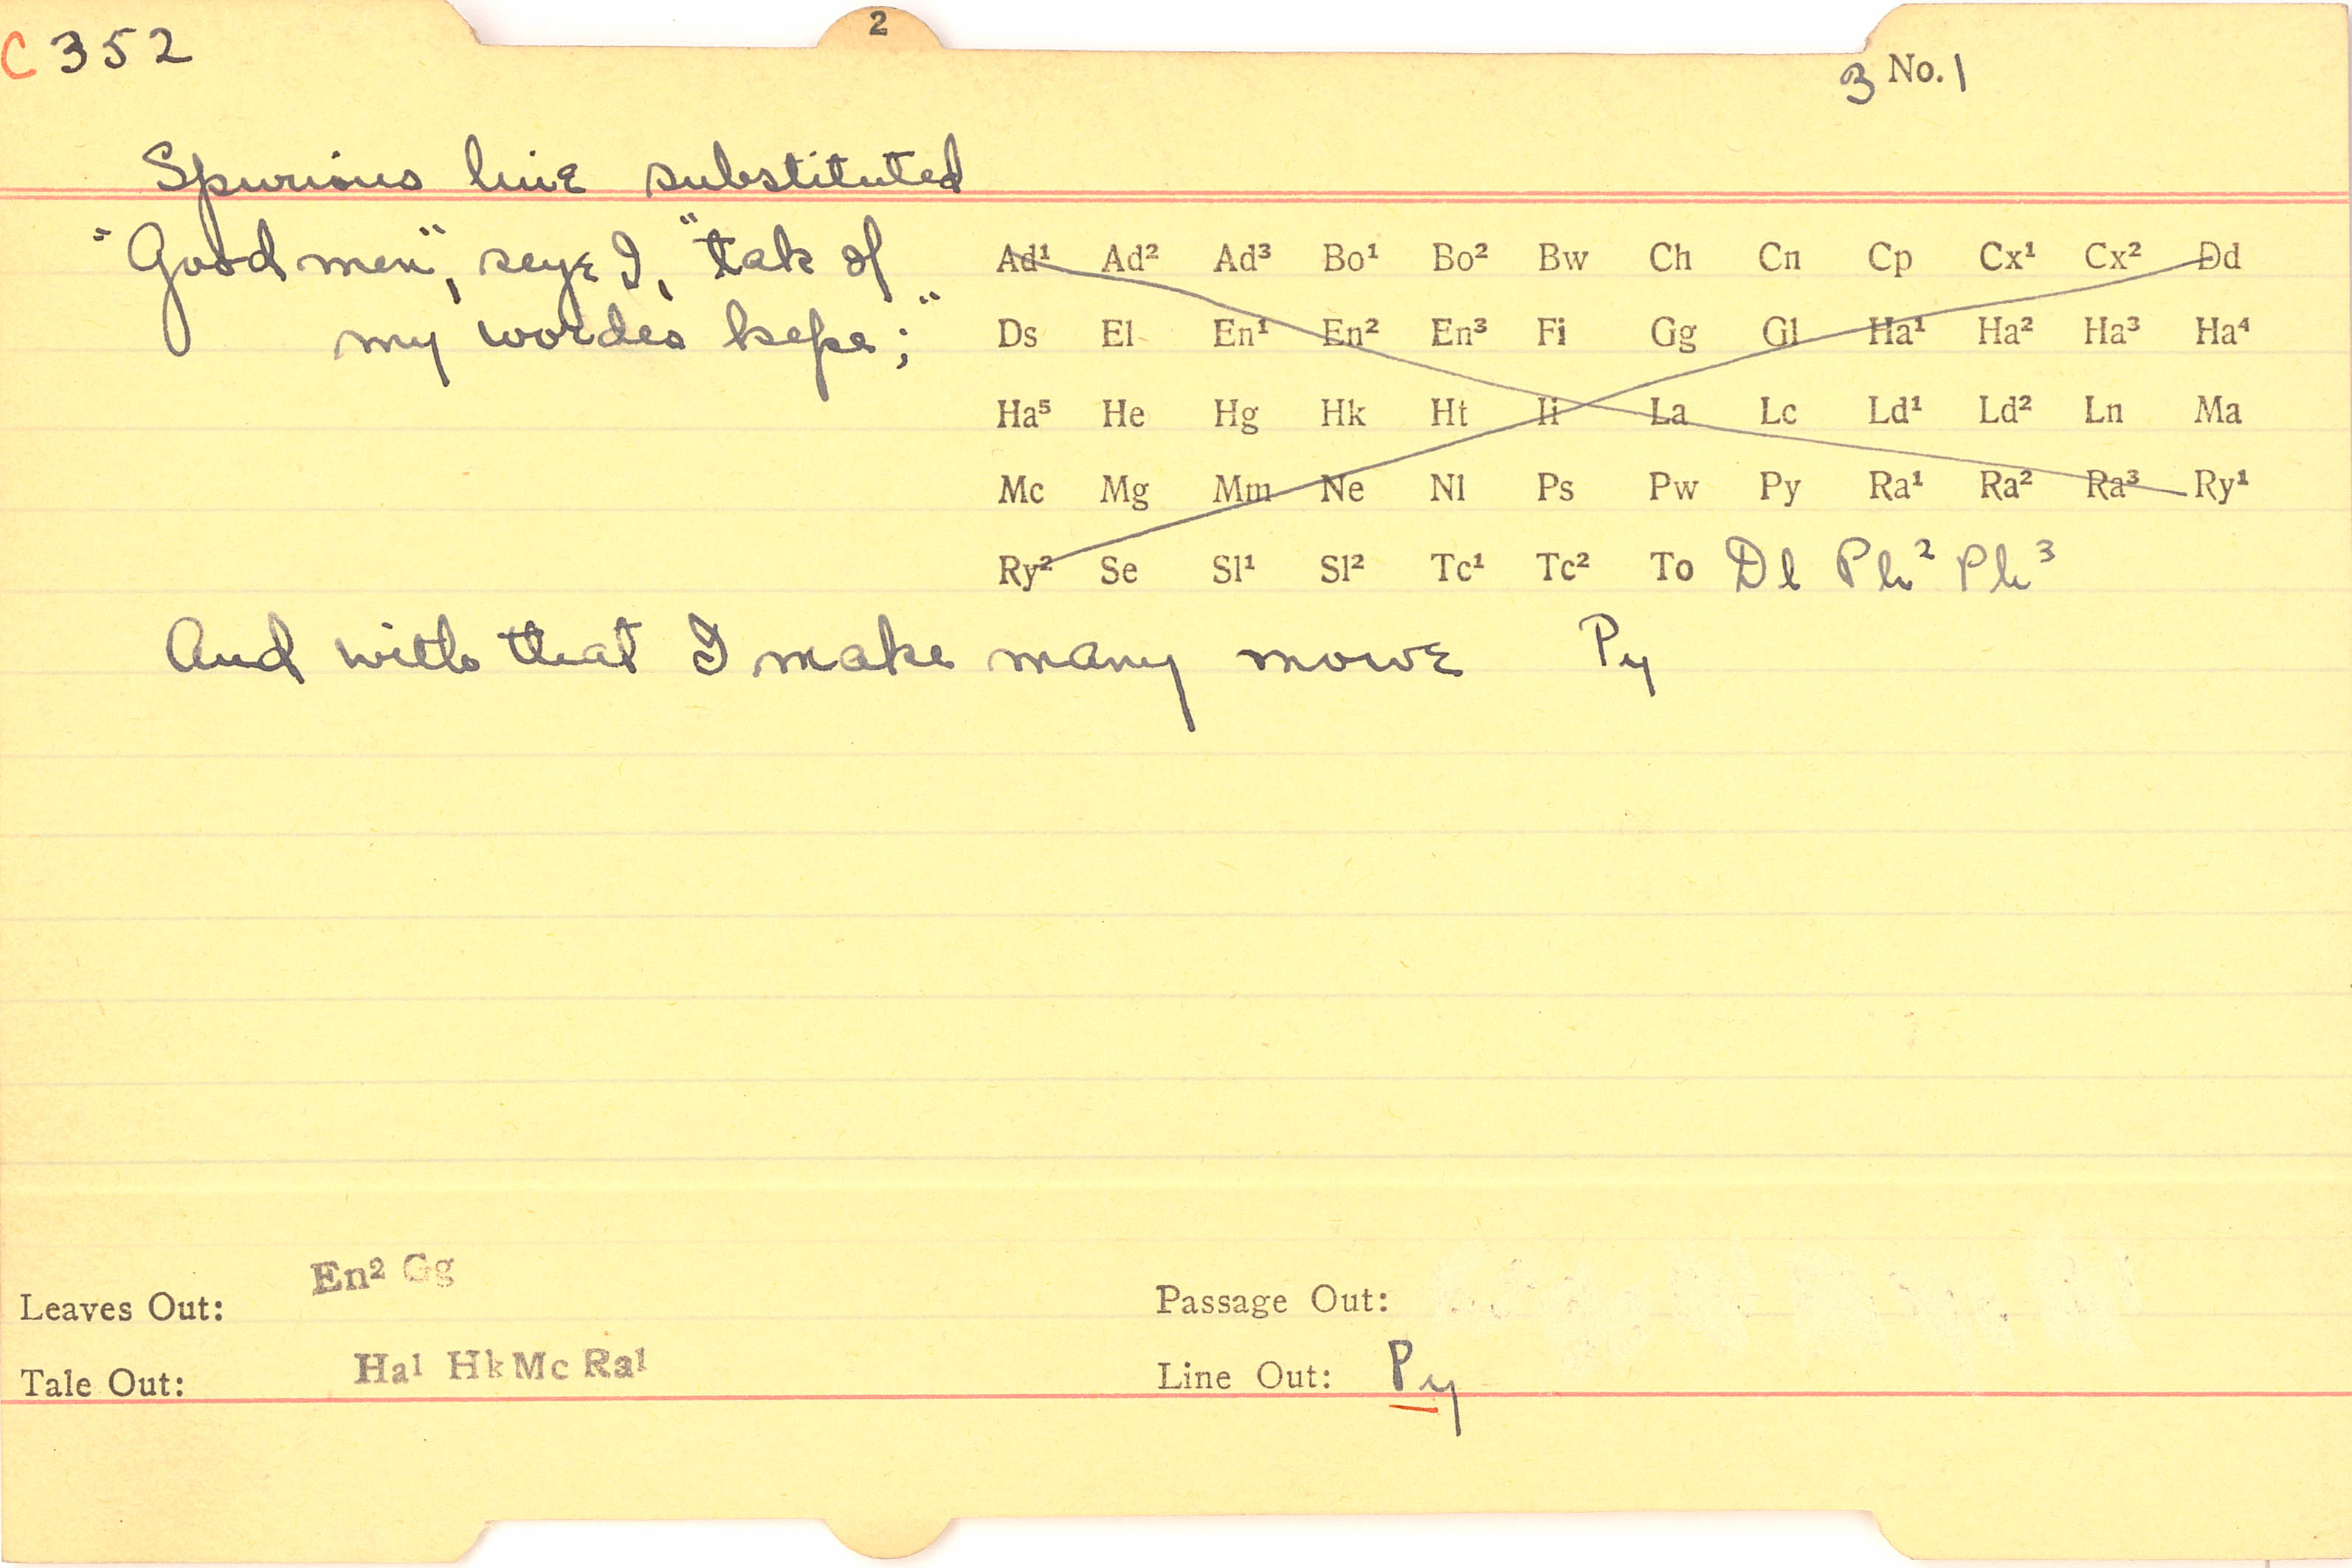 2
C 352
3 No. 1
Spurious line substituted
"Good men", seye I, "tak of
my wordes kepe;"
Ad¹ Ad² Ad³ Bo¹ Bo² Bw Ch Cn Cp Cx¹ Cx² Dd
Ds El En¹ En² En³ Fi Gg Gl Ha¹ Ha² Ha³ Ha⁴
Ha⁵ He Hg Hk Ht Ii La Lc Ld¹ Ld² Ln Ma
Mc Mg Mm Ne Nl Ps Pw Py Ra¹ Ra² Ra³ Ry¹
Ry² Se Sl¹ Sl² Tc¹ Tc² To Dl Ph² Ph³
And with that I make many mowe Py
Leaves Out: En² Gg
Passage Out:
Tale Out: Ha¹ Hk Mc Ra¹
Line Out: Py